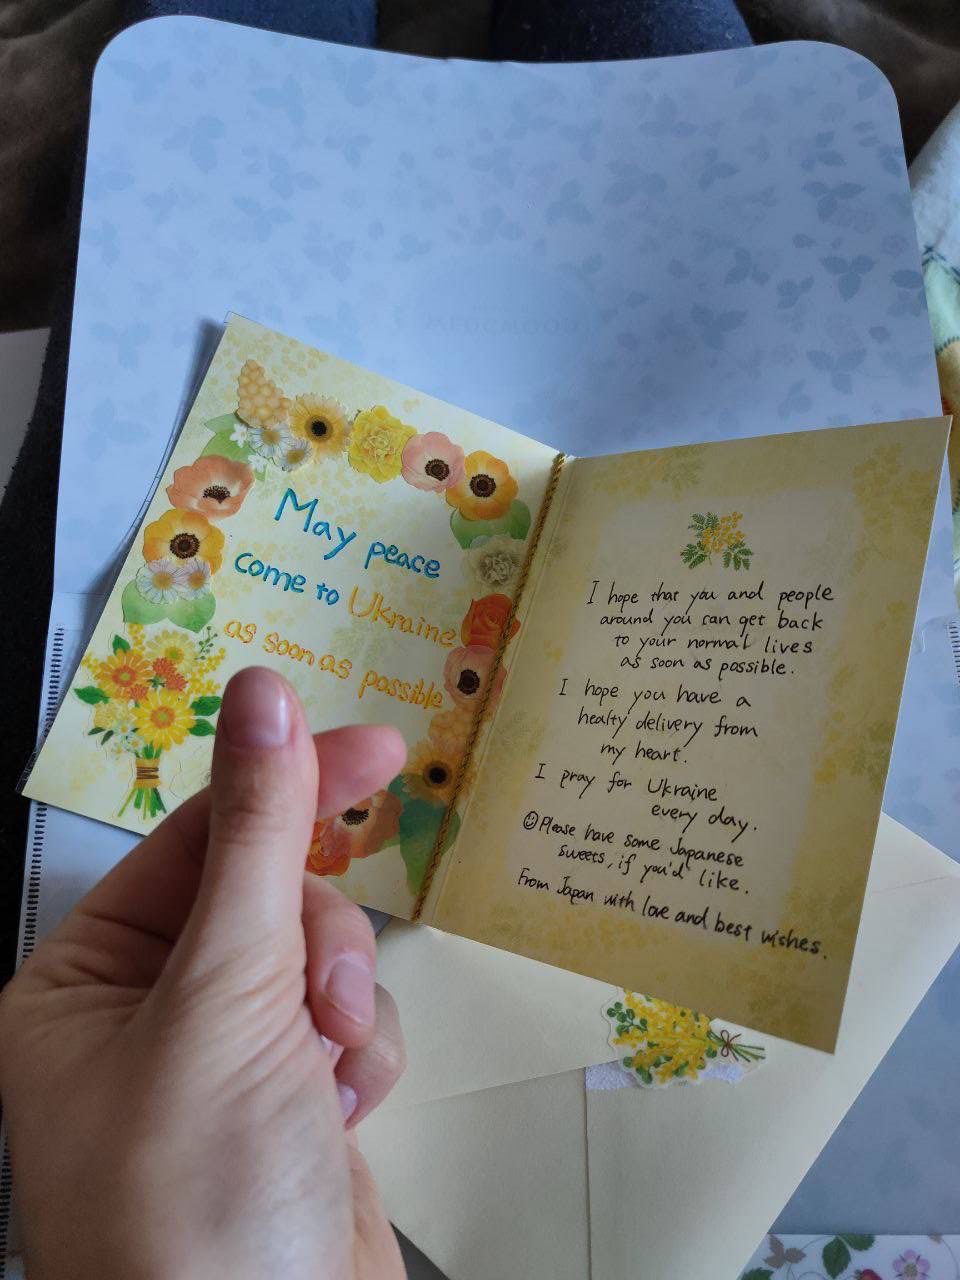 May peace
come to Ukraine
as soon as possible
I hope that you and people
around you can get back
to your normal lives
as soon as possible.
I hope you have a
healty delivery from
my heart.
I pray for Ukraine
every day.
☺Please have some Japanese
sweets, if you'd like.
From Japan with love and best wishes.